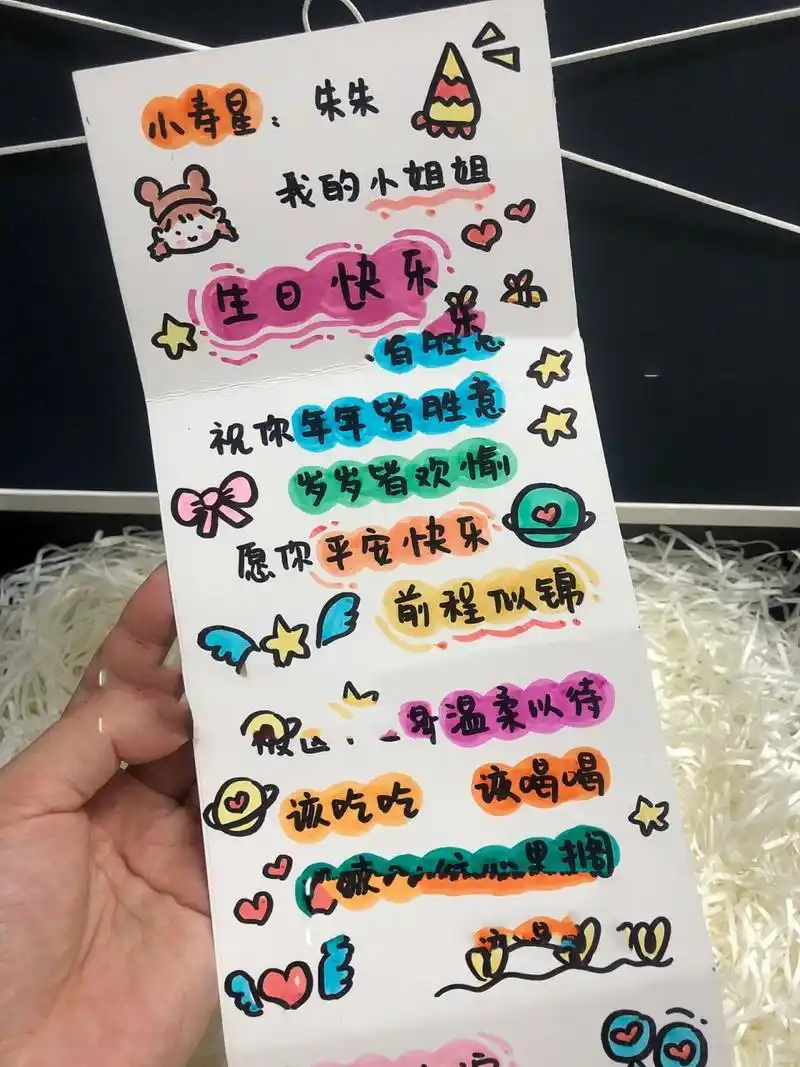 小寿星: 朱朱
我的小姐姐
生日快乐
乐
自胜意
祝你年年皆胜意
岁岁皆欢愉
愿你平安快乐
前程似锦
温柔以待
该吃吃 该喝喝
里搁